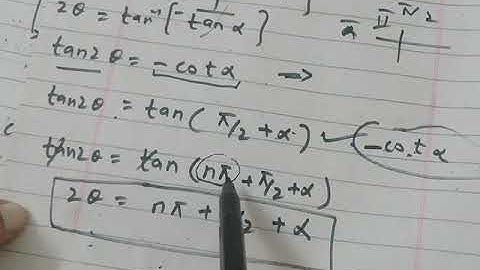 2θ = tan⁻¹[-1/tan α]
π/2
tan2θ = -cot α →
tan2θ = tan(π/2 + α) -cot α
tan2θ = tan(nπ + π/2 + α)
2θ = nπ + /2 + α